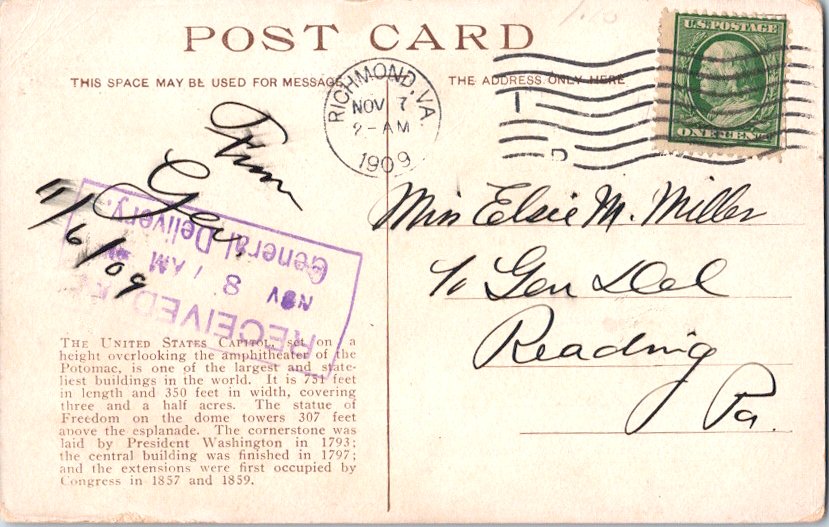 POST CARD
THIS SPACE MAY BE USED FOR MESSAGE
THE ADDRESS ONLY HERE
U.S. POSTAGE
ONE CENT
RICHMOND, VA.
NOV 7
2-AM
1909
1
D
From
Geo.
11/6/09
RECEIVED
NOV 8 1 AM
General Delivery.
Miss Elsie M. Miller
c/o Gen Del
Reading
Pa.
THE UNITED STATES CAPITOL, set on a
height overlooking the amphitheater of the
Potomac, is one of the largest and state-
liest buildings in the world. It is 751 feet
in length and 350 feet in width, covering
three and a half acres. The statue of
Freedom on the dome towers 307 feet
above the esplanade. The cornerstone was
laid by President Washington in 1793;
the central building was finished in 1797;
and the extensions were first occupied by
Congress in 1857 and 1859.